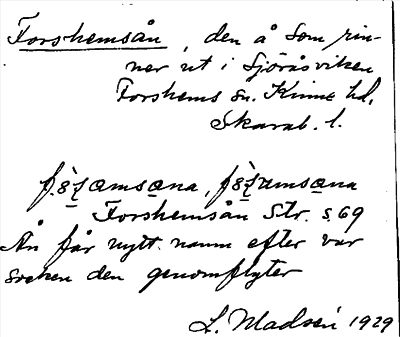 Forshemsån, den å som rin-
ner ut i Sjöråsviken
Forshems sn. Kinne hd.
Skarab. l.
Forshemsån Str. s. 69
Ån får nytt namn efter var
socken den genomflyter
L. Madsén 1929